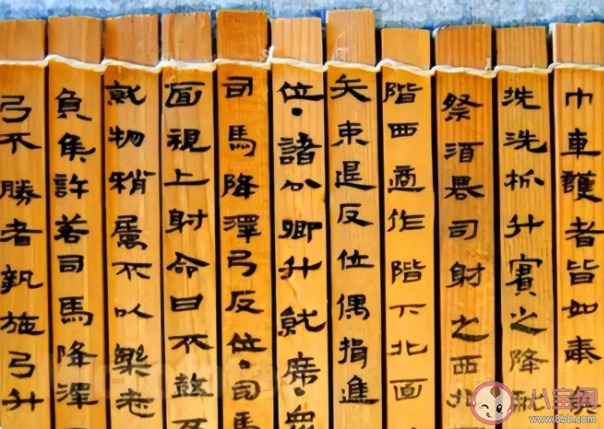 巾車護者皆如奉
洗升賓之降
祭酒司射之西北
階西適作階下北面
矢束退反位偶揖進
位·諸公卿升就席·眾
司馬降澤弓反位·司馬
面視上射命曰不鼓不
就物稍屬不以樂志
負矦許若司馬降澤
弓不勝者執施弓升
八宝网
www.8bb.com